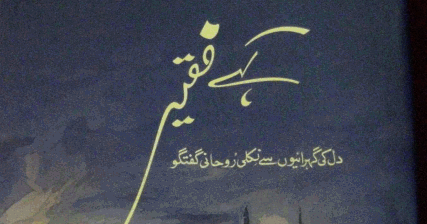 کہے فقیر
دل کی گہرائیوں سے نکلی رُوحانی گفتگو